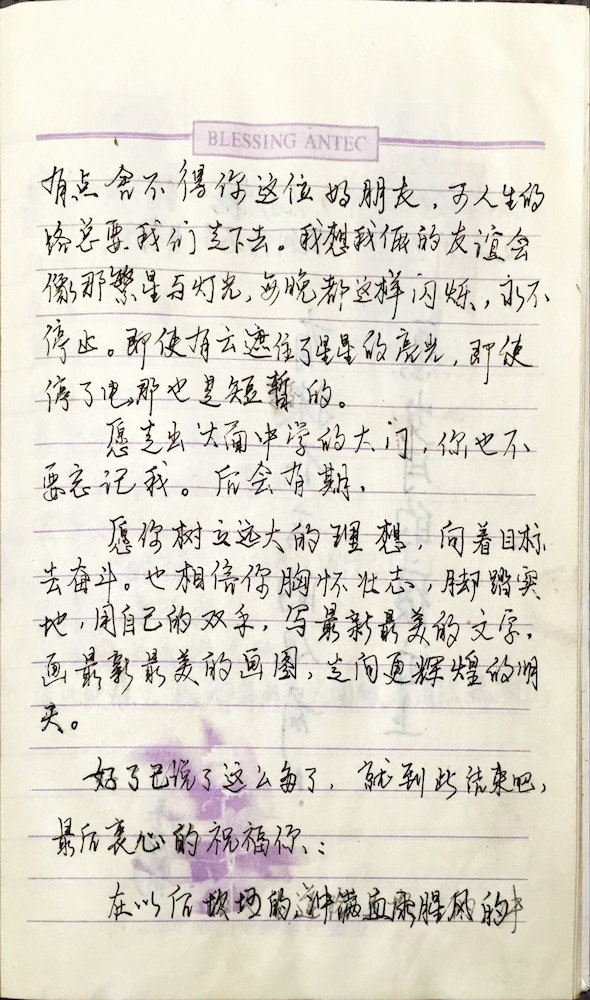 BLESSING ANTEC
有点舍不得你这位好朋友，可人生的
路总要我们走下去。我想我俩的友谊会
像那繁星与灯光，每晚都这样闪烁，永不
停止。即使有云遮住了星星的亮光，即使
停了电，那也是短暂的。
愿走出大面中学的大门，你也不
要忘记我。后会有期。
愿你树立远大的理想，向着目标
去奋斗。也相信你胸怀壮志，脚踏实
地，用自己的双手，写最新最美的文字，
画最新最美的画图，走向更辉煌的明
天。
好了已说了这么多了，就到此结束吧，
最后衷心的祝福你：
在以后坎坷的途中 血 腥风的